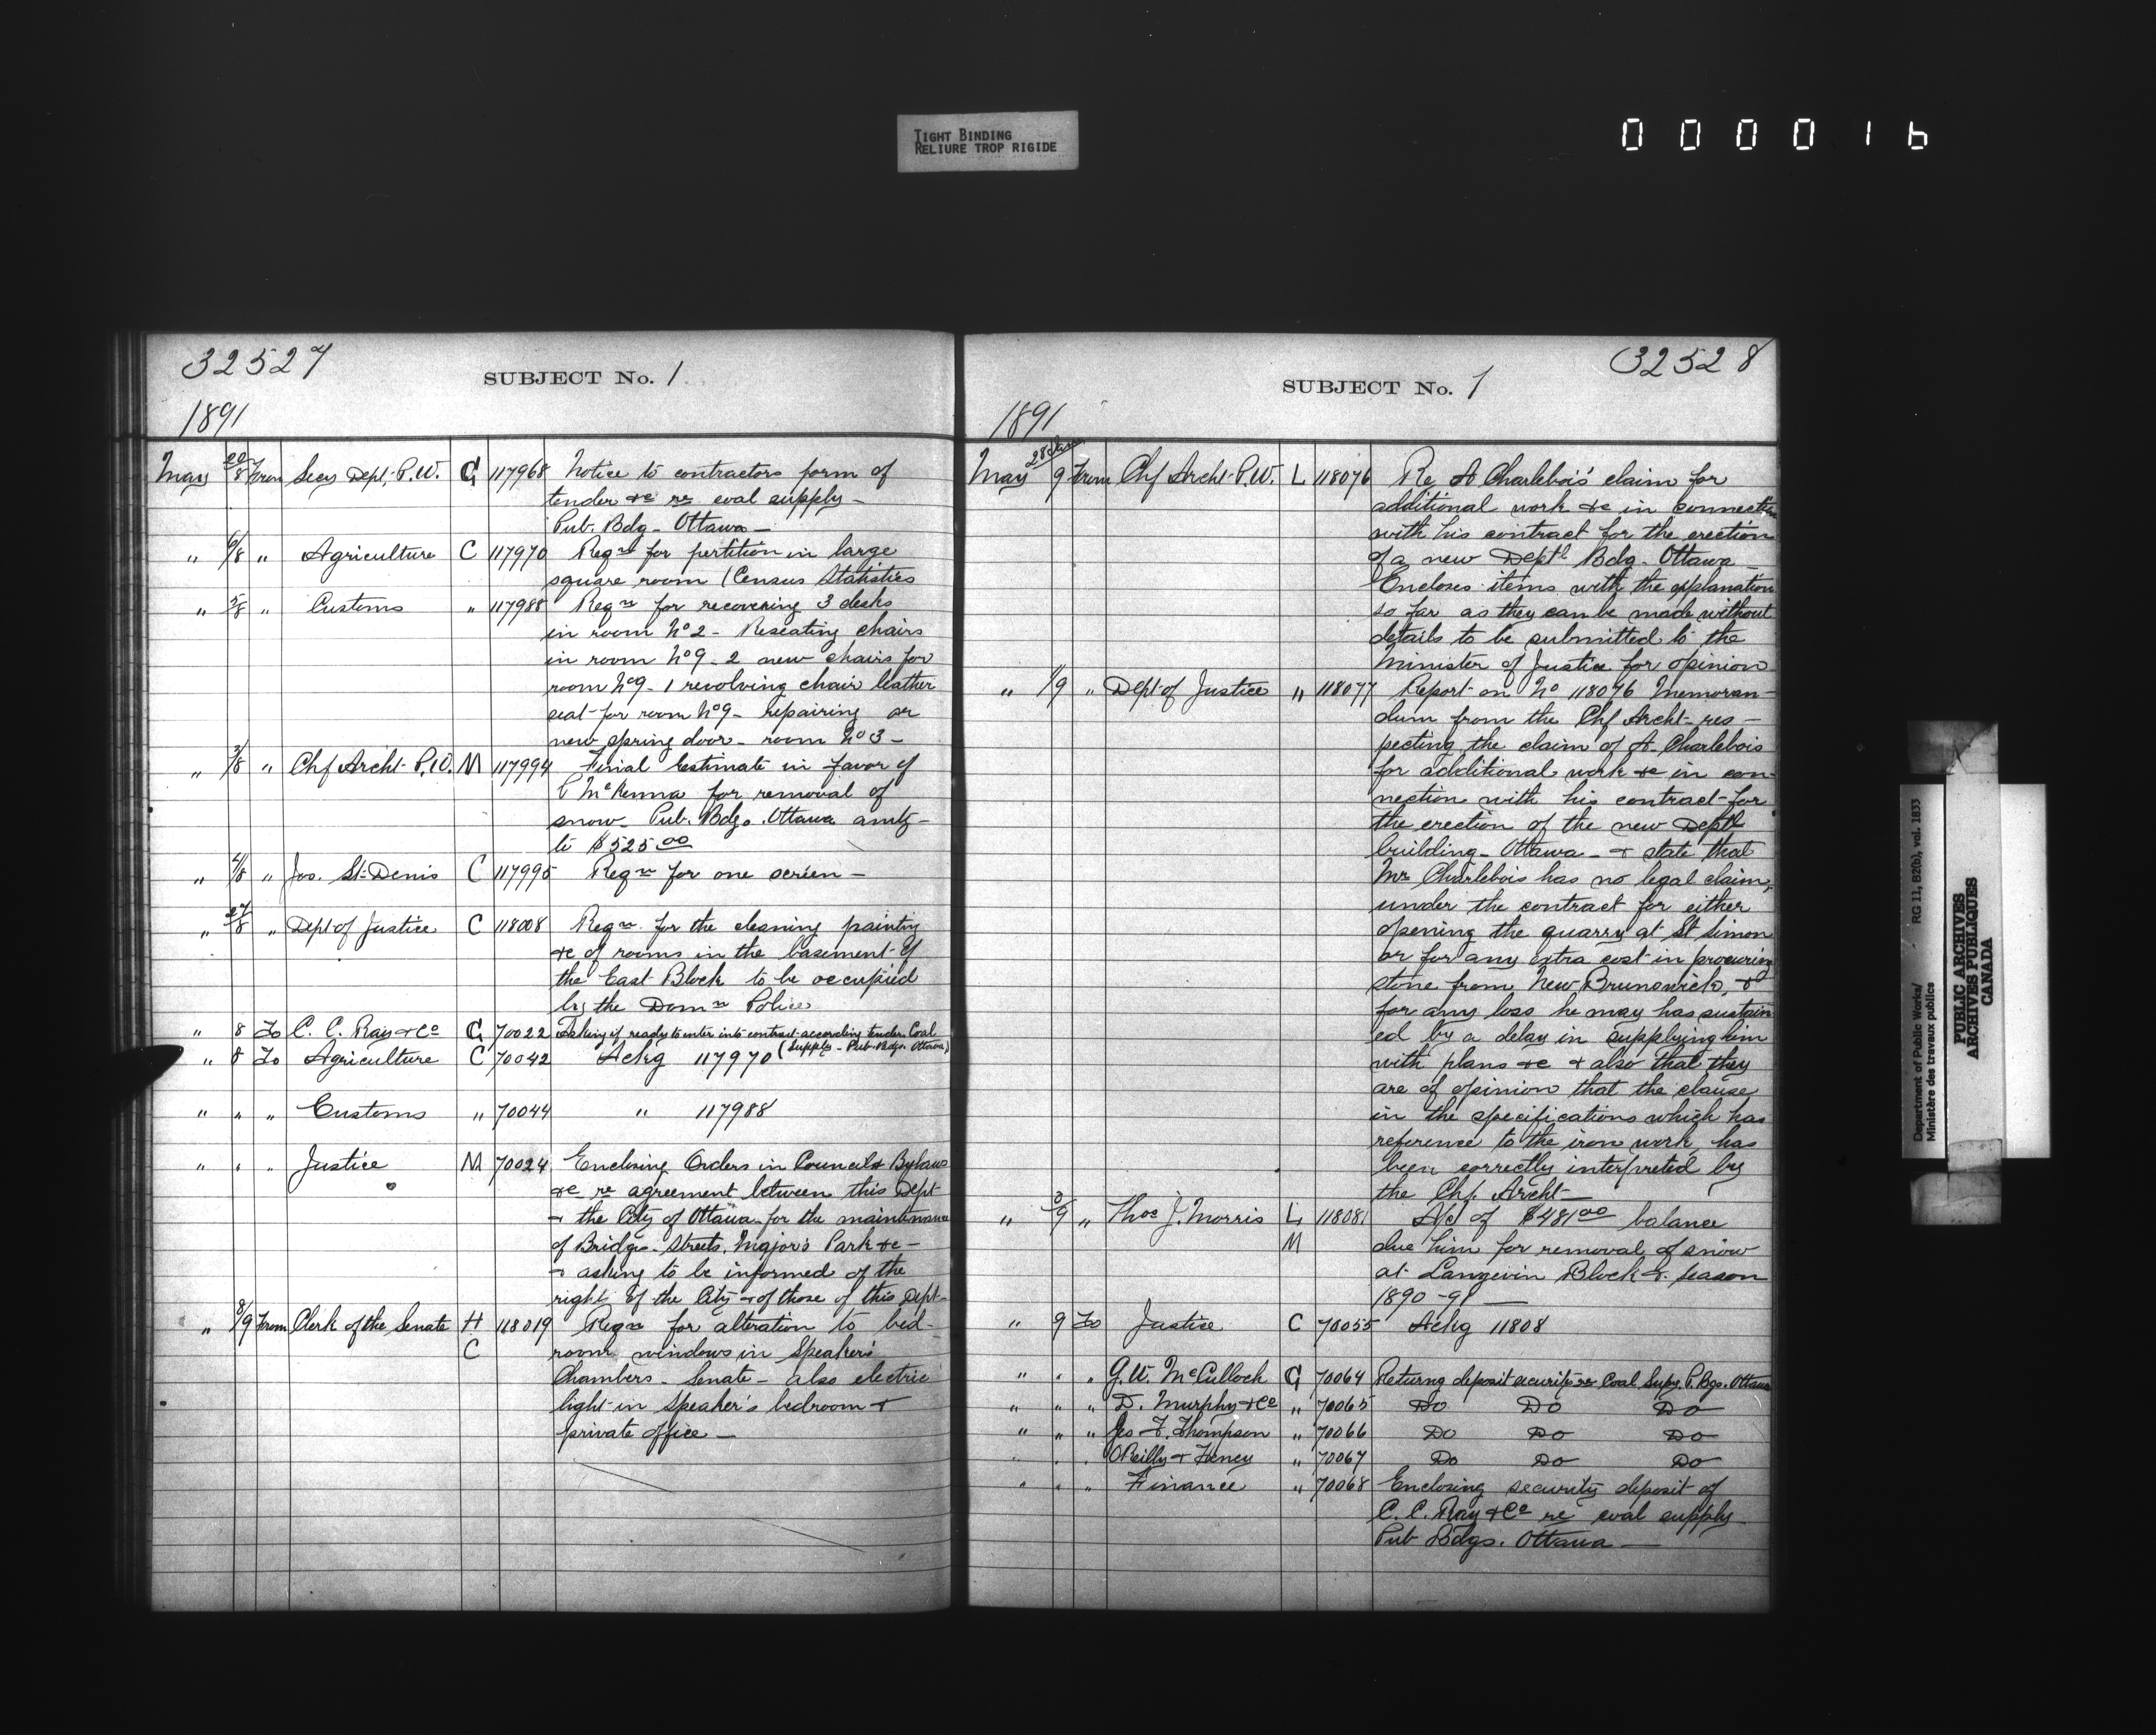 TIGHT BINDING
RELIURE TROP RIGIDE
000016
32527
SUBJECT No. 1
1891
May 22/8 From Secy Dept. P.W. G 117968 Notice to contractors form of
tender &c re coal supply -
Pub. Bdg - Ottawa -
" 6/8 " Agriculture C 117970 Reqn for partition in large
square room (Census Statistics
" 5/8 " Customs " 117988 Reqn for recovering 3 desks
in room No 2 - Reseating chairs
in room No 9 - 2 new chairs for
room No 9 - 1 revolving chair leather
seat for room No 9 - repairing or
new spring door - room No 3 -
" 7/8 " Chf Archt - P.W. M 117994 Final Estimate in favor of
McKenna for removal of
snow - Pub. Bdgs. Ottawa amtg -
to $525.00
" 4/8 " Jos. St-Denis C 117995 Reqn for one screen -
" 27/8 " Dept of Justice C 118008 Reqn for the cleaning painting
&c of rooms in the basement of
the East Block to be occupied
by the Domn Police
" 8 To C. C. Ray & Co G 70022 Asking if ready to enter into contract according tender Coal
(Supply - Pub. Bdgs. Ottawa)
" 8 To Agriculture C 70042 Ackg 117970
" " " Customs " 70044 " 117988
" " " Justice M 70024 Enclosing Orders in Council & Bylaws
&c re agreement between this Dept
& the City of Ottawa for the maintenance
of Bridges - Streets, Major's Park &c -
& asking to be informed of the
right of the City & of those of this Dept -
" 8/9 From Clerk of the Senate H 118019 Reqn for alteration to bed-
C room windows in Speaker's
Chambers - Senate - also electric
light in Speaker's bedroom &
private office -
32528
SUBJECT No. 1
1891
May 28 Jan 9 From Chf Archt - P.W. L 118076 Re A Charlebois' claim for
additional work &c in connection
with his contract for the erection
of a new Deptl Bdg - Ottawa -
Encloses items with the explanation
so far as they can be made without
details to be submitted to the
Minister of Justice for opinion
" 1/9 " Dept of Justice " 118077 Report on No 118076 Memoran-
dum from the Chf Archt - res -
pecting the claim of A. Charlebois
for additional work &c in con-
nection with his contract for
the erection of the new Deptl
building - Ottawa - & state that
Mr Charlebois has no legal claim,
under the contract for either
opening the quarry at St Simon
or for any extra cost in procuring
stone from New Brunswick, &
for any loss he may has sustain
ed by a delay in supplying him
with plans &c & also that they
are of opinion that the clause
in the specifications which has
reference to the iron work, has
been correctly interpreted by
the Chf. Archt -
" 8/9 " Thos J. Morris L 118081 A/c of $481.00 balance
M due him for removal of snow
at Langevin Block &. season
1890-91 -
" 9 To Justice C 70055 Ackg 11808
" " " G. W. McCulloch G 70064 Returng deposit security re Coal Supy. P. Bgs. Ottawa
" " " D. Murphy & Co " 70065 Do Do Do
" " " Geo F. Thompson " 70066 Do Do Do
" " " O'Reilly & Heney " 70067 Do Do Do
" " " Finance " 70068 Enclosing security deposit of
C. C. Ray & Co re coal supply
Pub Bdgs. Ottawa -
Department of Public Works/
Ministère des travaux publics
RG 11, B2(b), vol. 1833
PUBLIC ARCHIVES
ARCHIVES PUBLIQUES
CANADA